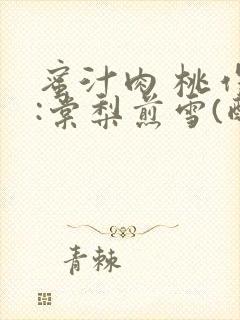 蜜汁肉桃作
:棠梨煎雪(
青棘